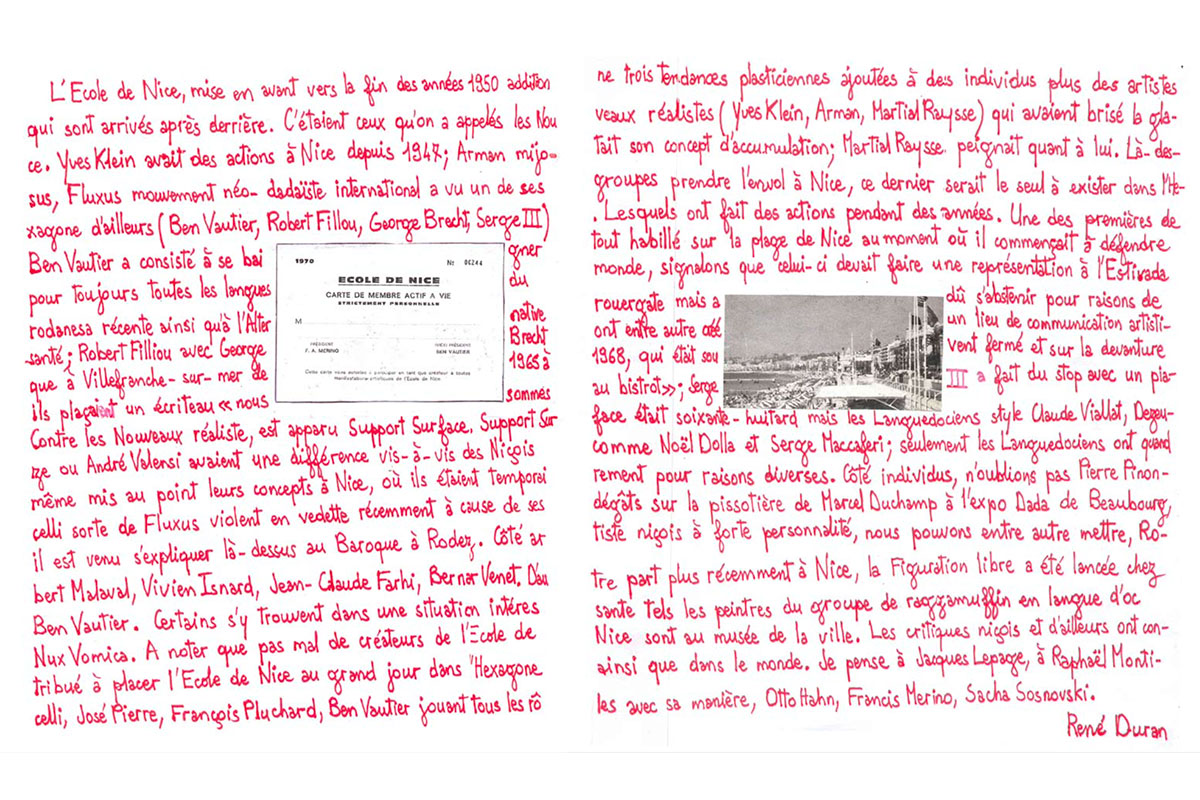 L'Ecole de Nice, mise en avant vers la fin des années 1950 addition
ne trois tendances plasticiennes ajoutées à des individus plus des artistes
qui sont arrivés après derrière. C'étaient ceux qu'on a appelés les Nou
veaux réalistes (Yves Klein, Arman, Martial Raysse) qui avaient brisé la gla-
ce. Yves Klein avait des actions à Nice depuis 1947; Arman mijo-
tait son concept d'accumulation; Martial Raysse peignait quant à lui. Là-des-
sus, Fluxus mouvement néo-dadaïste international a vu un de ses
groupes prendre l'envol à Nice, ce dernier serait le seul à exister dans l'He-
xagone d'ailleurs (Ben Vautier, Robert Fillou, George Brecht, Serge III)
. Lesquels ont fait des actions pendant des années. Une des premières de
Ben Vautier a consisté à se bai gner
tout habillé sur la plage de Nice au moment où il commençait à défendre
pour toujours toutes les langues du
monde, signalons que celui-ci devait faire une représentation à l'Estivada
rodanesa récente ainsi qu'à l'Alter native
rouergate mais a dû s'abstenir pour raisons de
santé; Robert Filliou avec George Brecht
ont entre autre créé un lieu de communication artisti-
que à Villefranche-sur-mer de 1965 à
1968, qui était sou vent fermé et sur la devanture
ils plaçaient un écriteau « nous sommes
au bistrot»; Serge III a fait du stop avec un pia-
Contre les Nouveaux réaliste, est apparu Support Surface. Support Sur
face était soixante-huitard mais les Languedociens style Claude Viallat, Dezeu-
ze ou André Valensi avaient une différence vis-à-vis des Niçois
comme Noël Dolla et Serge Maccaferi; seulement les Languedociens ont quand
même mis au point leurs concepts à Nice, où ils étaient temporai
rement pour raisons diverses. Côté individus, n'oublions pas Pierre Pinon-
celli sorte de Fluxus violent en vedette récemment à cause de ses
dégâts sur la pissotière de Marcel Duchamp à l'expo Dada de Beaubourg,
il est venu s'expliquer là-dessus au Baroque à Rodez. Côté ar
tiste niçois à forte personnalité, nous pouvons entre autre mettre, Ro-
bert Malaval, Vivien Isnard, Jean-Claude Farhi, Bernar Venet. D'au
tre part plus récemment à Nice, la Figuration libre a été lancée chez
Ben Vautier. Certains s'y trouvent dans une situation intéres
sante tels les peintres du groupe de raggamuffin en langue d'oc
Nux Vomica. A noter que pas mal de créateurs de l'Ecole de
Nice sont au musée de la ville. Les critiques niçois et d'ailleurs ont con-
tribué à placer l'Ecole de Nice au grand jour dans l'Hexagone
ainsi que dans le monde. Je pense à Jacques Lepage, à Raphaël Monti-
celli, José Pierre, François Pluchard, Ben Vautier jouant tous les rô
les avec sa manière, Otto Hahn, Francis Merino, Sacha Sosnovski.
René Duran
1970 Nr 00244
ECOLE DE NICE
CARTE DE MEMBRE ACTIF A VIE
STRICTEMENT PERSONNELLE
M
PRÉSIDENT
F. A. MERINO
VICE PRÉSIDENT
BEN VAUTIER
Cette carte vous autorise à participer en tant que créateur à toutes
manifestations artistiques de l'Ecole de Nice.